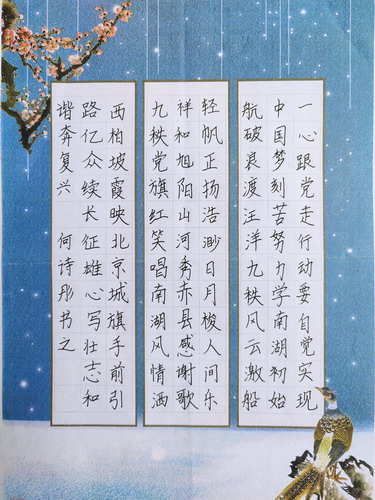 一心跟党走行动要自觉实现
中国梦刻苦努力学南湖初始
航破浪渡汪洋九秩风云激船
轻帆正扬浩渺日月梭人间乐
祥和旭阳山河秀赤县感谢歌
九秩党旗红笑唱南湖风情洒
西柏坡霞映北京城旗手前引
路亿众续长征雄心写壮志和
谐奔复兴 何诗彤书之